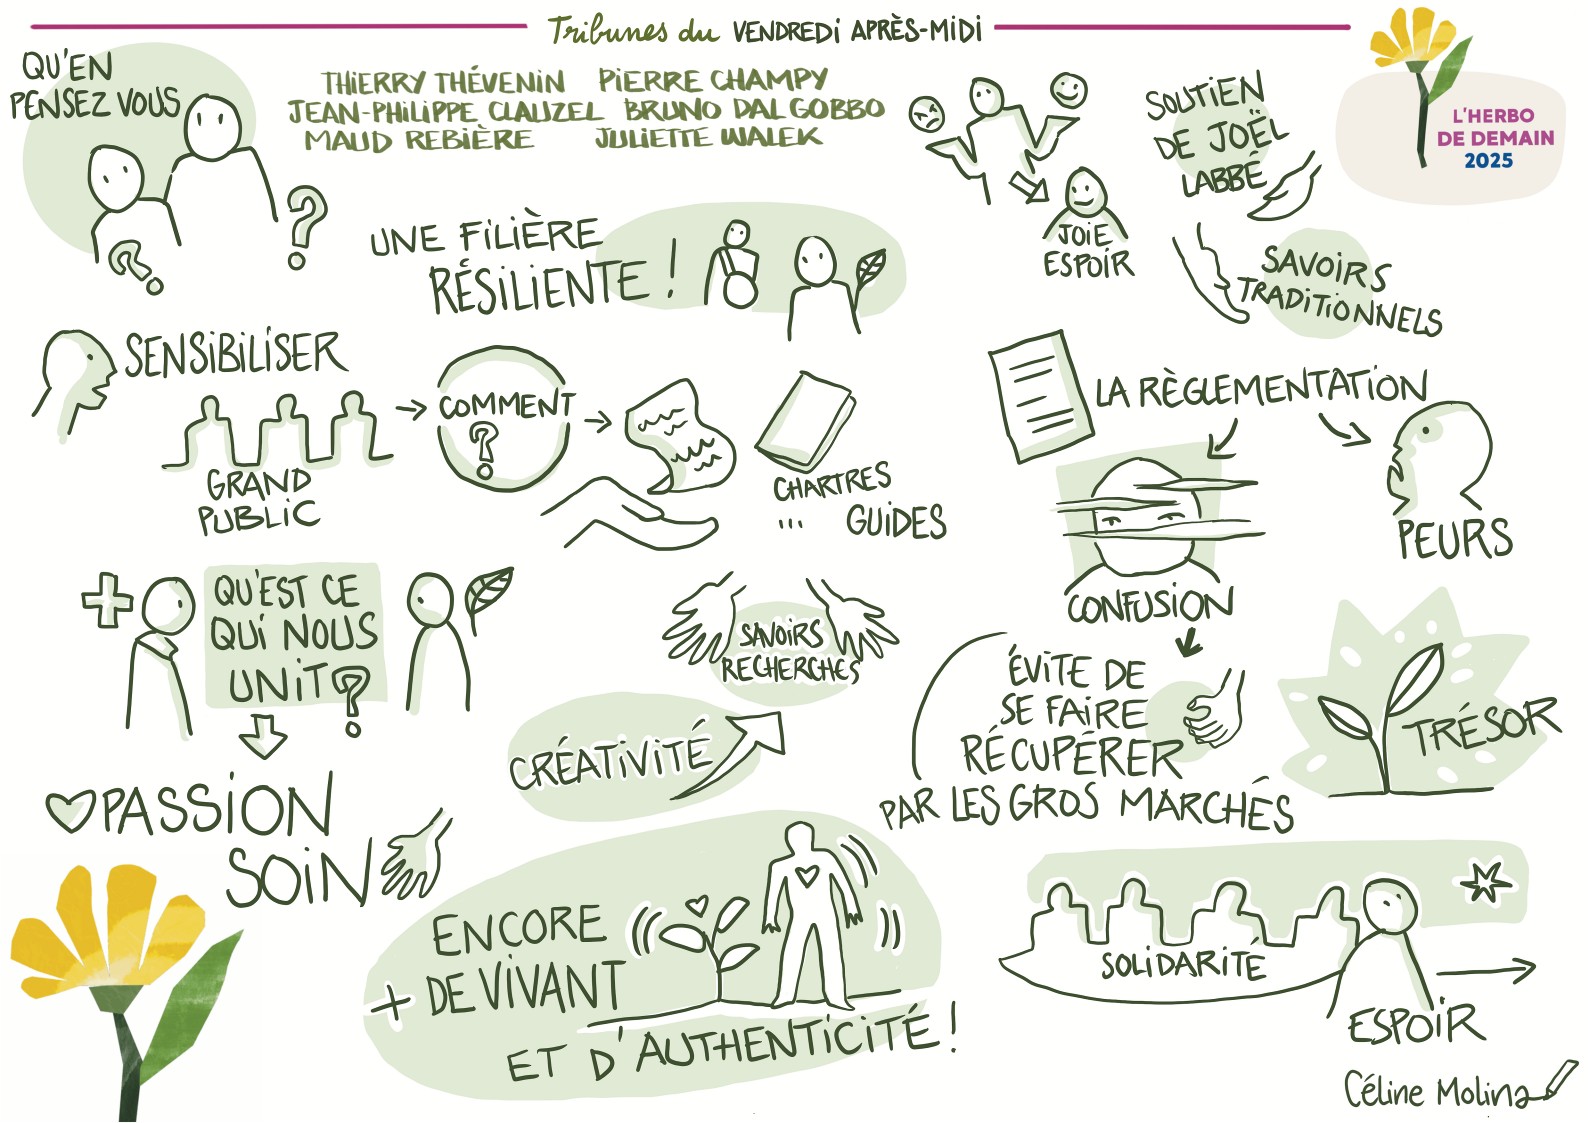 Tribunes du VENDREDI APRÈS-MIDI
QU'EN
PENSEZ VOUS
?
?
THIERRY THÉVENIN PIERRE CHAMPY
JEAN-PHILIPPE CLAUZEL BRUNO DAL GOBBO
MAUD REBIÈRE JULIETTE WALEK
JOIE
ESPOIR
SOUTIEN
DE JOËL
LABBÉ
L'HERBO
DE DEMAIN
2025
UNE FILIÈRE
RÉSILIENTE !
SAVOIRS
TRADITIONNELS
SENSIBILISER
GRAND
PUBLIC
COMMENT
?
CHARTRES
... GUIDES
LA RÈGLEMENTATION
CONFUSION
PEURS
QU'EST CE
QUI NOUS
UNIT?
PASSION
SOIN
SAVOIRS
RECHERCHES
CRÉATIVITÉ
ÉVITE DE
SE FAIRE
RÉCUPÉRER
PAR LES GROS MARCHÉS
TRÉSOR
ENCORE
+ DE VIVANT
ET D'AUTHENTICITÉ !
SOLIDARITÉ
ESPOIR
Céline Molina